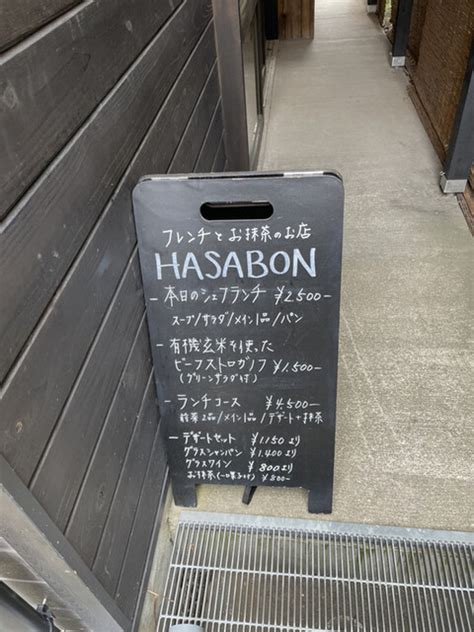 フレンチとお抹茶のお店
HASABON
- 本日のシェフランチ ¥2,500-
スープ/サラダ/メイン1品/パン
- 有機玄米を使った
ビーフストロガノフ ¥1,500-
(グリーンサラダ付)
- ランチコース ¥4,500-
前菜2品/メイン1品/デザート+抹茶
- デザートセット ¥1,150より
グラスシャンパン ¥1,400より
グラスワイン ¥800より
お抹茶(一口菓子付) ¥800-